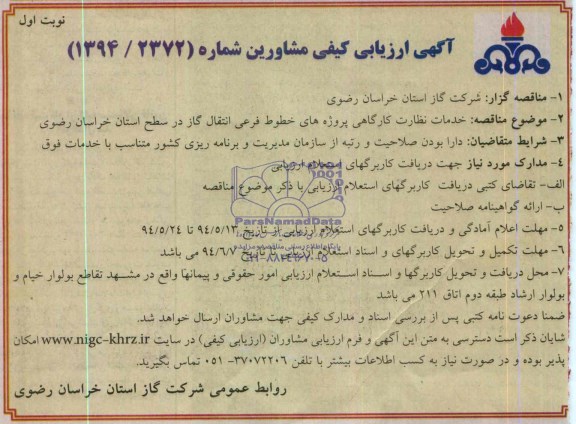 نوبت اول
آگهی ارزیابی کیفی مشاورین شماره (۲۳۷۲ / ۱۳۹۴)
۱- مناقصه گزار: شرکت گاز استان خراسان رضوی
۲- موضوع مناقصه: خدمات نظارت کارگاهی پروژه های خطوط فرعی انتقال گاز در سطح استان خراسان رضوی
۳- شرایط متقاضیان: دارا بودن صلاحیت و رتبه از سازمان مدیریت و برنامه ریزی کشور متناسب با خدمات فوق
۴- مدارک مورد نیاز جهت دریافت کاربرگهای استعلام ارزیابی
الف- تقاضای کتبی دریافت کاربرگهای استعلام ارزیابی با ذکر موضوع مناقصه
ب- ارائه گواهینامه صلاحیت
ParsNamadData
۵- مهلت اعلام آمادگی و دریافت کاربرگهای استعلام ارزیابی از تاریخ ۹۴/۵/۱۳ تا ۹۴/۵/۲۴
۶- مهلت تکمیل و تحویل کاربرگهای و اسناد استعلام ارزیابی تا تاریخ ۹۴/۶/۷ می باشد
۷- محل دریافت و تحویل کاربرگها و اسناد استعلام ارزیابی امور حقوقی و پیمانها واقع در مشهد تقاطع بولوار خیام و
بولوار ارشاد طبقه دوم اتاق ۲۱۱ می باشد
ضمنا دعوت نامه کتبی پس از بررسی اسناد و مدارک کیفی جهت مشاوران ارسال خواهد شد.
شایان ذکر است دسترسی به متن این آگهی و فرم ارزیابی مشاوران (ارزیابی کیفی) در سایت www.nigc-khrz.ir امکان
پذیر بوده و در صورت نیاز به کسب اطلاعات بیشتر با تلفن ۳۷۰۷۲۲۰۶- ۰۵۱ تماس بگیرید.
روابط عمومی شرکت گاز استان خراسان رضوی